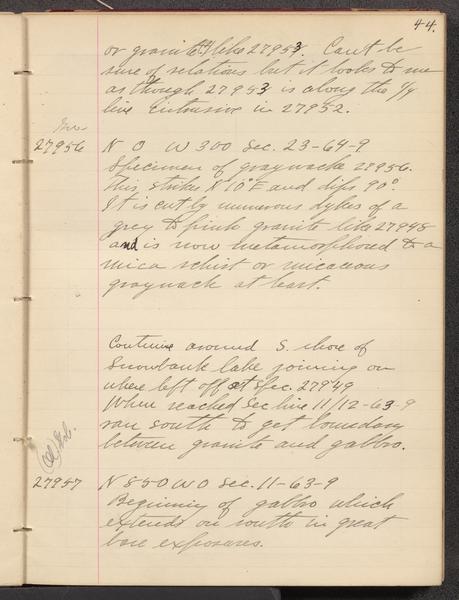 44.
or granite like 27953. Can't be
sure of relations but it looks to me
as though 27953 is along the
line intrusive in 27952.
27956 N 0 W 300 Sec. 23-64-9
Specimen of graywacke 27956.
This strikes N 10° E and dips 90°
It is cut by numerous dykes of a
grey to pink granite like 27948
and is now metamorphosed to a
mica schist or micaceous
graywack at least.
Continue around S. shore of
Snowbank Lake joining on
where left off at Spec. 27949
When reached Sec line 11/12-63-9
ran south to get boundary
between granite and gabbro.
27957 N 850 W 0 Sec. 11-63-9
Beginning of gabbro which
extends on south in great
bare exposures.